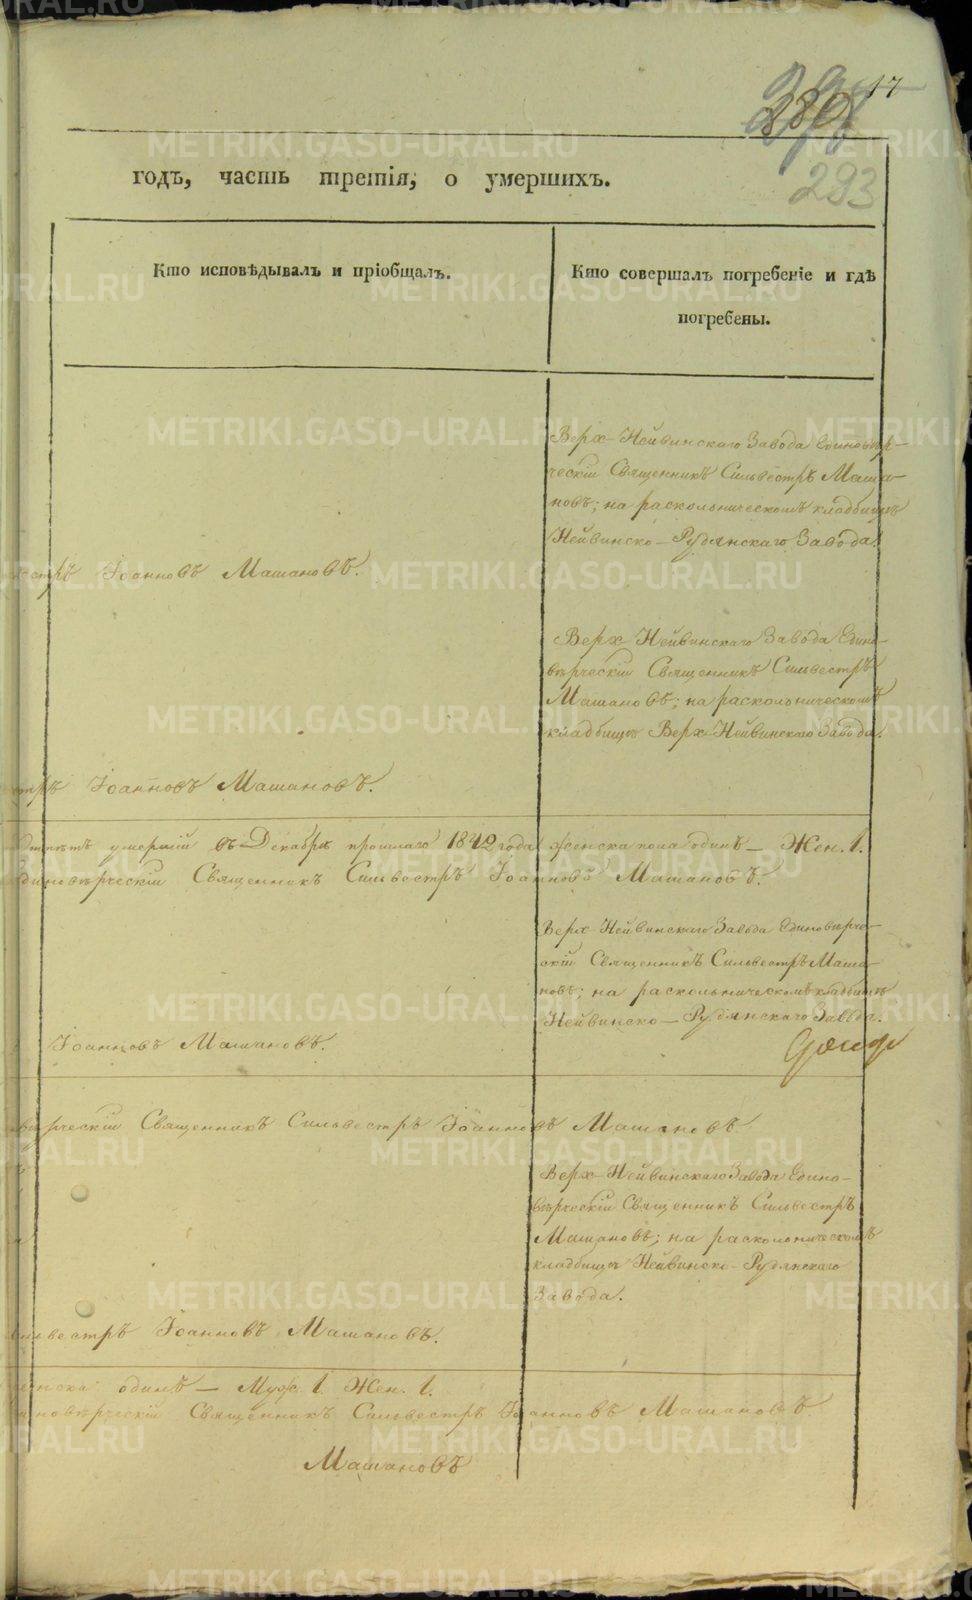 17
293
годъ, часть третія, о умершихъ.
Кто исповѣдывалъ и пріобщалъ.
Кто совершалъ погребеніе и гдѣ
погребены.
Верх-Нейвинскаго Завода Единовѣр-
ческій Священникъ Сильвестръ Маша-
новъ; на раскольническомъ кладбищѣ
Нейвинско-Рудянскаго Завода.
стръ Іоанновъ Машановъ.
Верх-Нейвинскаго Завода Едино-
вѣрческій Священникъ Сильвестръ
Машановъ; на раскольническомъ
кладбищѣ Верх-Нейвинскаго Завода.
стръ Іоанновъ Машановъ.
умершій въ Декабрѣ прошлаго 1842 года женска пола одинъ — Жен. 1.
диновѣрческій Священникъ Сильвестръ Іоанновъ Машановъ.
Верх-Нейвинскаго Завода Единовѣрче-
скій Священникъ Сильвестръ Маша-
новъ; на раскольническомъ кладбищѣ
Нейвинско-Рудянскаго Завода.
Іоанновъ Машановъ.
вѣрческій Священникъ Сильвестръ Іоанновъ Машановъ
Верх-Нейвинскаго Завода Едино-
вѣрческій Священникъ Сильвестръ
Машановъ; на раскольническомъ
кладбищѣ Нейвинско-Рудянскаго
Завода.
ильвестръ Іоанновъ Машановъ.
женска одинъ — Муж. 1. Жен. 1.
иновѣрческій Священникъ Сильвестръ Іоанновъ Машановъ.
Машановъ
METRIKI.GASO-URAL.RU